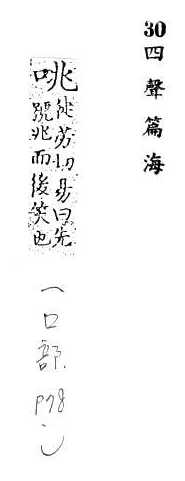 30四聲篇海
咷
徒劳切易曰先
號兆而後笑也
(口部 P78)